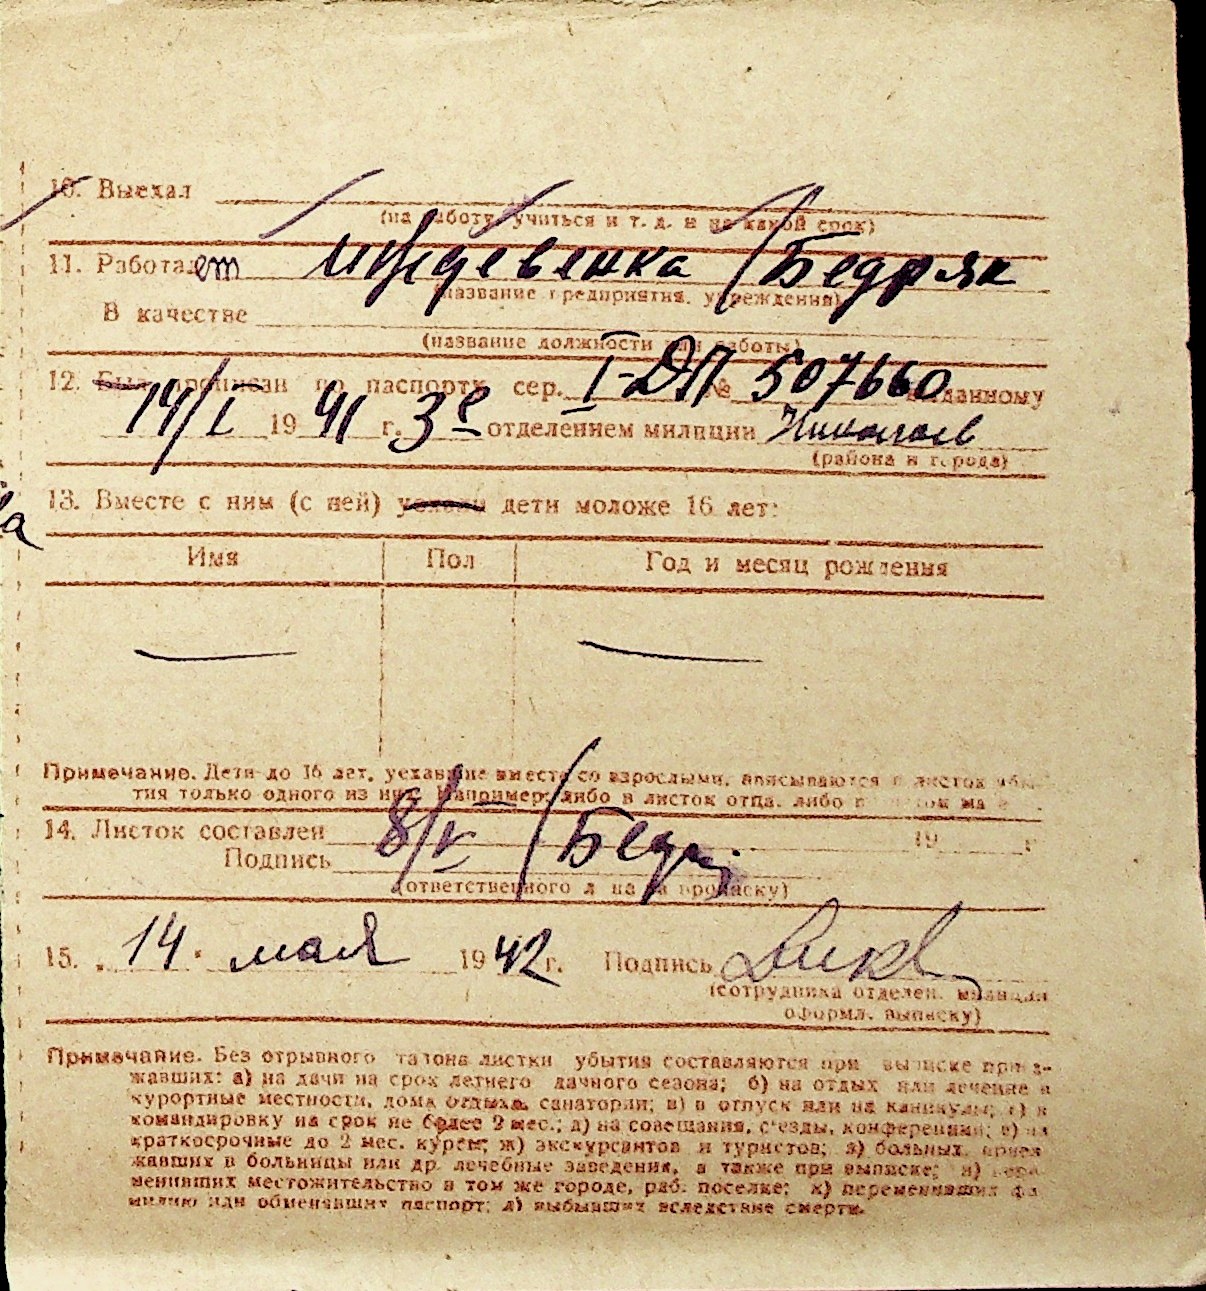 10. Выехал
(на работу, учиться и т. д. и на какой срок)
11. Работает иждевенка /Бедряк
(название предприятия, учреждения)
В качестве
(название должности или работы)
12. Был прописан по паспорту сер. I-ДП № 507660 выданному
14/I 1941 г. 3е отделением милиции Николаев
(района и города)
13. Вместе с ним (с ней) уехали дети моложе 16 лет:
Имя Пол Год и месяц рождения
— —
Примечание. Дети до 16 лет, уехавшие вместе со взрослыми, вписываются в листок убы-
тия только одного из них. Например: либо в листок отца, либо в листок ма
14. Листок составлен 8/V 19 г
Подпись /Бедр
(ответственного лица за прописку)
15. „14" мая 1942 г. Подпись
(сотрудника отделен. милиции
оформл. выписку)
Примечание. Без отрывного талона листки убытия составляются при выписке приез-
жавших: а) на дачи на срок летнего дачного сезона; б) на отдых или лечение в
курортные местности, дома отдыха, санатории; в) в отпуск или на каникулы; г) в
командировку на срок не более 2 мес.; д) на совещания, съезды, конференции; е) на
краткосрочные до 2 мес. курсы; ж) экскурсантов и туристов; з) больных, приез
жавших в больницы или др. лечебные заведения, а также при выписке; и) пере
менивших местожительство в том же городе, раб. поселке; к) переменивших фа
милию или обменявших паспорт; л) выбывших вследствие смерти.